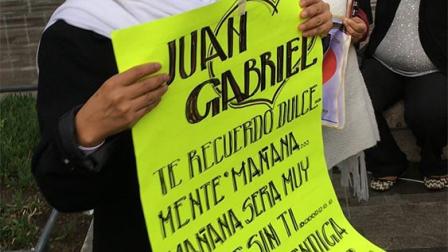 JUAN
GABRIEL
TE RECUERDO DULCE...
MENTE MAÑANA...
MAÑANA SERA MUY
SIN TI